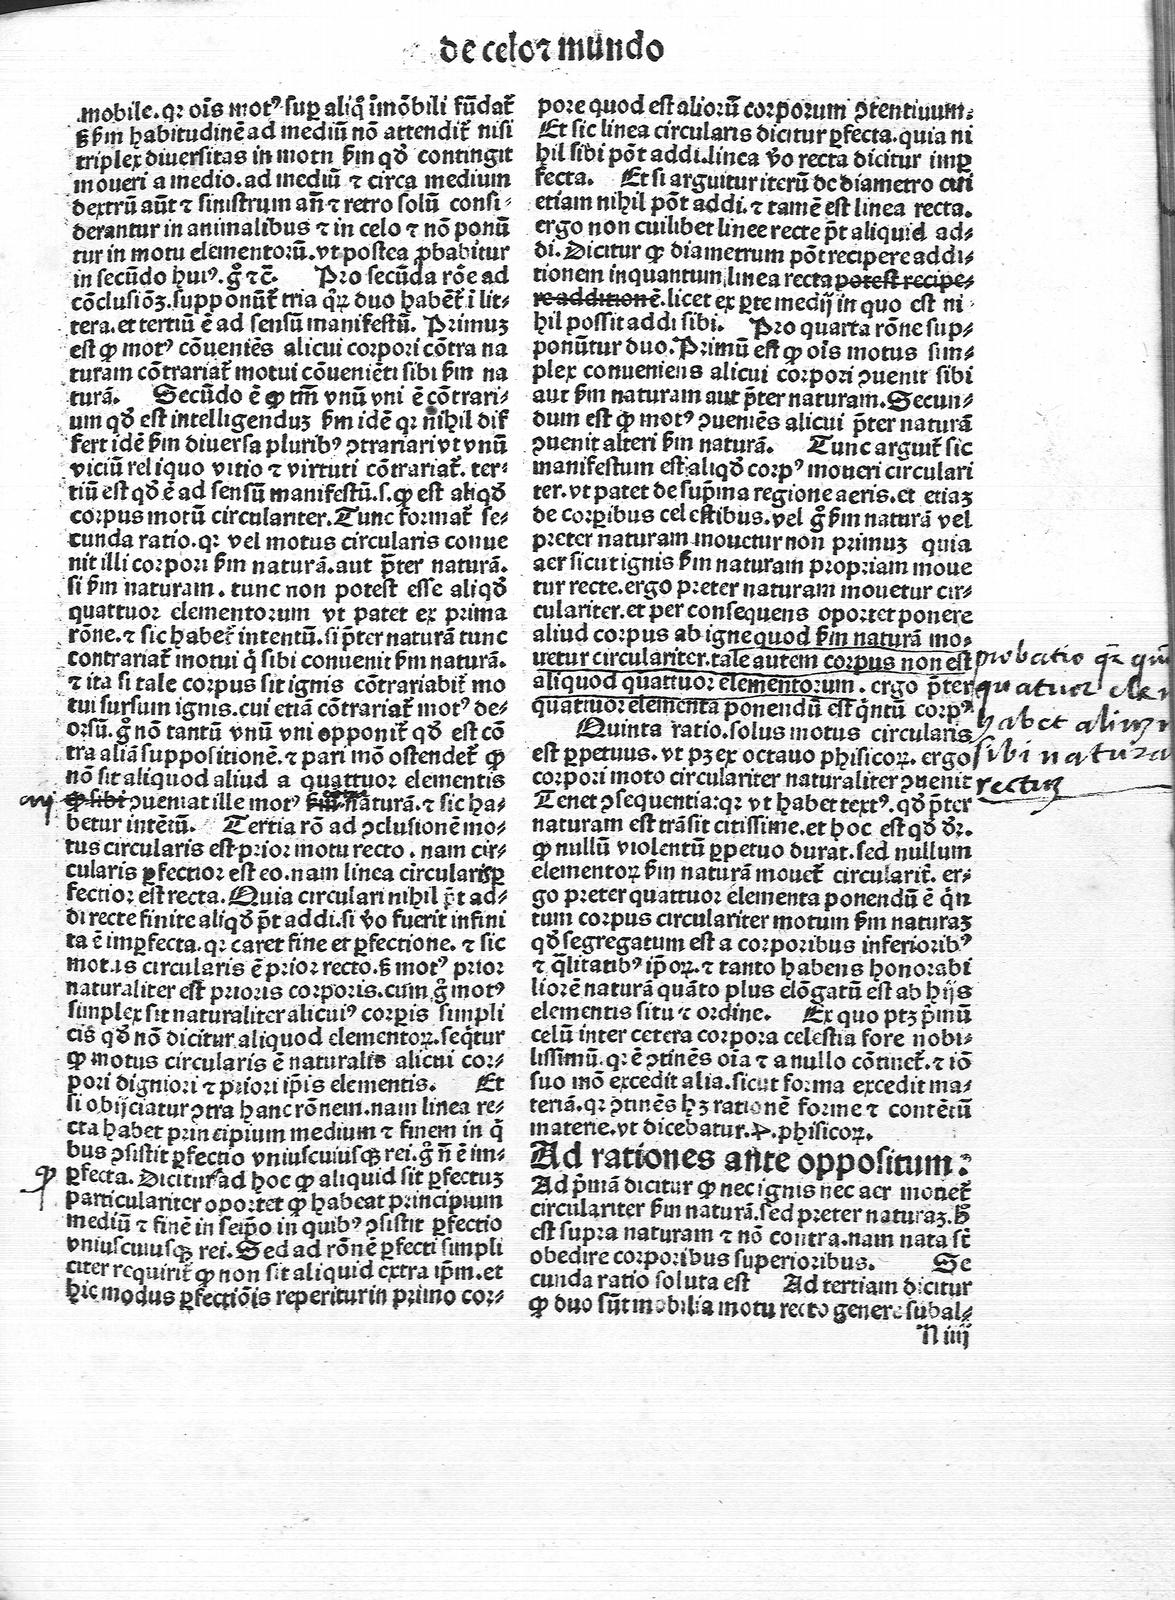 de celo ⁊ mundo
mobile. qꝛ oĩs motꝰ suꝑ aliq̊ ĩmõbili fũdat᷑
sꝫ ẜm habitudinẽ ad mediũ nõ attendit᷑ nisi
triplex diuersitas in motu ẜm qđ contingit
moueri a medio. ad mediũ ⁊ circa medium
dextrũ aũt ⁊ sinistrum añ ⁊ retro solũ consi⸗
derantur in animalibus ⁊ in celo ⁊ nõ ponũ
tur in motu elementorũ. vt postea ꝓbabitur
in secũdo huiꝰ. g̊ ⁊c̃. Pro secũda rõe ad
cõclusiõꝫ. supponũt᷑ tria qꝝ duo habẽt᷑ i lit⸗
tera. et tertiũ ẽ ad sensũ manifestũ. Primuꝫ
est ꝙ motꝰ cõueniẽs alicui corpori cõtra na
turam cõtrariat᷑ motui cõueniẽti sibi ẜm na
turã. Secũdo ẽ ꝙ tm̃ vnũ vni ẽ cõtrari⸗
um qđ est intelligenduꝫ ẜm idẽ qꝛ nihil dif
fert idẽ ẜm diuersa pluribꝰ ↄtrariari vt vnũ
viciũ reliquo vitio ⁊ virtuti cõtrariat᷑. ter⸗
tiũ est qđ ẽ ad sensũ manifestũ. s. ꝙ est aliqđ
corpus motũ circulariter. Tunc format᷑ se⸗
cunda ratio. qꝛ vel motus circularis conue
nit illi corpori ẜm naturã. aut p̃ter naturã.
si ẜm naturam. tunc non potest esse aliqđ
quattuor elementorum vt patet ex prima
rõne. ⁊ sic habet᷑ intentũ. si p̃ter naturã tunc
contrariat᷑ motui q̇ sibi conuenit ẜm naturã.
⁊ ita si tale corpus sit ignis cõtrariabit᷑ mo
tui sursum ignis. cui etiã cõtrariat᷑ motꝰ de⸗
orsũ. g̊ nõ tantũ vnũ vni opponit᷑ qđ est cõ
tra aliã suppositionẽ. ⁊ pari mõ ostendet᷑ ꝙ
nõ sit aliquod aliud a quattuor elementis
cui
ꝙ sibi ↄueniat ille motꝰ ẜm naturã. ⁊ sic ha⸗
betur intẽtũ. Tertia rõ ad ↄclusionẽ mo⸗
tus circularis est prior motu recto. nam cir⸗
cularis ꝑfectior est eo. nam linea circularis ꝑ
fectior est recta. Quia circulari nihil p̃t ad⸗
di recte finite aliqđ p̃t addi. si ṽo fuerit infini
ta ẽ imꝑfecta. qꝛ caret fine et ꝑfectione. ⁊ sic
motus circularis ẽ prior recto. sꝫ motꝰ prior
naturaliter est prioris corporis. cum g̊ motꝰ
simplex sit naturaliter alicuiꝰ corꝑis simpli
cis qđ nõ dicitur aliquod elementoꝝ. seq̃tur
ꝙ motus circularis ẽ naturalis alicui cor⸗
pori digniori ⁊ priori ip̃is elementis. Et
si obijciatur ↄtra hanc rõnem. nam linea re⸗
cta habet principium medium ⁊ finem in q̇
bus ↄsistit ꝑfectio vniuscuiusqꝫ rei. g̊ ñ ẽ im⸗
ꝙ
ꝑfecta. Dicitur ad hoc ꝙ aliquid sit ꝑfectuꝫ
particulariter oportet ꝙ habeat principium
mediũ ⁊ finẽ in seip̃o in quibꝰ ↄsistit ꝑfectio
vniuscuiusqꝫ rei. Sed ad rõnẽ ꝑfecti simpli
citer requirit᷑ ꝙ non sit aliquid extra ip̃m. et
hic modus ꝑfectiõis reperitur in primo cor⸗
pore quod est aliorũ corporum ↄtentiuum.
Et sic linea circularis dicitur ꝑfecta. quia ni
hil sibi põt addi. linea ṽo recta dicitur imꝑ
fecta. Et si arguitur iterũ de diametro cui
etiam nihil põt addi. ⁊ tamẽ est linea recta.
ergo non cuilibet linee recte p̃t aliquid ad⸗
di. Dicitur ꝙ diametrum põt recipere addi⸗
tionem inquantum linea recta potest recipe⸗
re additionẽ. licet ex ꝑte medij in quo est ni
hil possit addi sibi. Pro quarta rõne sup⸗
ponũtur duo. Primũ est ꝙ oĩs motus sim⸗
plex conueniens alicui corpori ↄuenit sibi
aut ẜm naturam aut p̃ter naturam. Secun⸗
dum est ꝙ motꝰ ↄueniẽs alicui p̃ter naturã
ↄuenit alteri ẜm naturã. Tunc arguit᷑ sic
manifestum est aliqđ corpꝰ moueri circulari
ter. vt patet de sup̃ma regione aeris. et etiaꝫ
de corꝑibus celestibus. vel g̊ ẜm naturã vel
preter naturam mouetur non primuꝫ quia
aer sicut ignis ẜm naturam propriam moue
tur recte. ergo preter naturam mouetur cir⸗
culariter. et per consequens oportet ponere
aliud corpus ab igne quod ẜm naturã mo⸗
uetur circulariter. tale autem corpus non est
aliquod quattuor elementorum. ergo p̃ter
quattuor elementa ponendũ est q̇ntũ corpꝰ
Quinta ratio. solus motus circularis
est ꝑpetuus. vt pꝫ ex octauo phisicoꝝ. ergo
corpori moto circulariter naturaliter ↄuenit
Tenet ↄsequentia: qꝛ vt habet textꝰ. qđ p̃ter
naturam est trãsit citissime. et hoc est qđ dr̃.
ꝙ nullũ violentũ ꝑpetuo durat. sed nullum
elementoꝝ ẜm naturã mouet᷑ circularit᷑. er⸗
go preter quattuor elementa ponendũ ẽ q̇n
tum corpus circulariter motum ẜm naturaꝫ
qđ segregatum est a corporibus inferioribꝰ
⁊ q̃litatibꝰ ip̃oꝝ. ⁊ tanto habens honorabi
liorẽ naturã quãto plus elõgatũ est ab hijs
elementis situ ⁊ ordine. Ex quo ptꝫ p̃mũ
celũ inter cetera corpora celestia fore nobi⸗
lissimũ. qꝛ ẽ ↄtinẽs oĩa ⁊ a nullo cõtinet᷑. ⁊ iõ
suo mõ excedit alia. sicut forma excedit ma⸗
teriã. qꝛ ↄtinẽs hꝫ rationẽ forme ⁊ contẽtũ
materie. vt dicebatur. 4. phisicoꝝ.
Ad rationes ante oppositum.
Ad p̃mã dicitur ꝙ nec ignis nec aer mouet᷑
circulariter ẜm naturã. sed preter naturaꝫ. hͦ
est supra naturam ⁊ nõ contra. nam nata st̃
obedire corporibus superioribus. Se
cunda ratio soluta est Ad tertiam dicitur
ꝙ duo sũt mobilia motu recto genere subal⸗
N iiij
probatio qꝛ
quatuor
habet
sibi natura
rectuꝫ